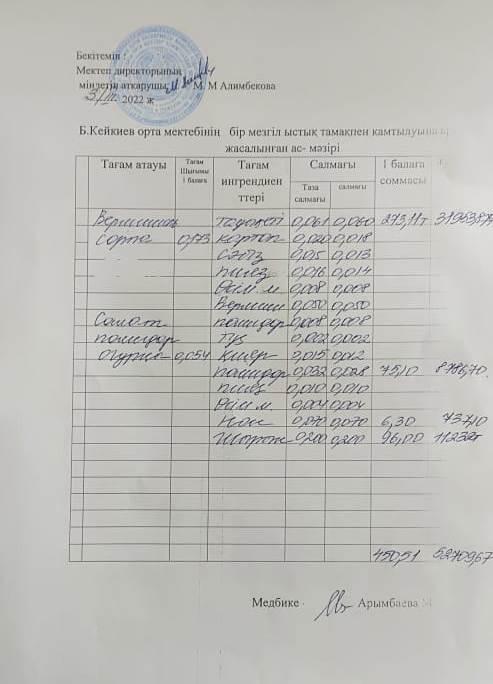 Бекітемін :
Мектеп директорының
міндетін атқарушы М. М Алимбекова
2022 ж
Б.Кейкиев орта мектебінің бір мезгіл ыстық тамақпен қамтылуына
жасалынған ас- мәзірі
Тағам атауы Тағам Шығымы 1 балаға Тағам ингрендиен ттері Салмағы 1 балаға соммасы
Таза салмағы салмағы
0,061 0,060 273,11т
сорпа 0,173 картоп 0,020 0,018
сәбіз 0,015 0,013
пияз 0,016 0,014
Өсім.м 0,008 0,008
Вермиш 0,050 0,050
Салат помидор 0,008 0,008
помидор тұз 0,002 0,002
огурец 0,054 0,015 0,012
помидор 0,032 0,028 75,10 8786,70
пияз 0,010 0,010
Өсім м. 0,004 0,004
Нан 0,070 0,070 6,30 737,10
0,200 0,200 96,00 11232т
450,51 52709,67
Медбике Арымбаева М